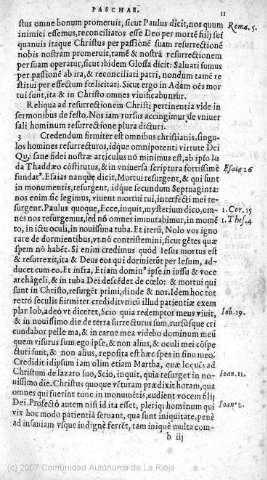 PASCHAE. 11
stus omne bonum promeruit, sicut Paulus dicit, nos quum Roma. 5.
inimici essemus, reconciliatos esse Deo per mortē filij sui
quanuis itaque Christus per passionē suam resurrectionē
nobis nostram promeruit, tamē & nostrā resurrectionem
per suam operatur, sicut ibidem Glossa dicit: Saluati sumus
per passionē ab ira, & reconciliati patri, nondum tamē re
stituti per effectum felicitati. Sicut ergo in Adam oēs mor
tui sunt, ita & in Christo omnes viuificabuntur.
Reliqua ad resurrectionem Christi pertinentia vide in
sermonibus de festo. Nos iam rursus accingimur, de vniuer
sali hominum resurrectione plura dicturi.
3 Credendum firmiter est omnibus christianis, singu-
los homines resurrecturos, idque omnipotenti virtute Dei
Qui sane fidei nostræ articulus nō minimus est, ab ipso Iu
da Thaddæo cōstitutus, & in vniuersa scriptura fortissime
fundat᷒. Esaias nanque dicit, Mortui resurgent, & qui sunt Esaiæ 26
in monumentis, resurgent, idque secundum Septuaginta:
nos enim sic legimus, viuent mortui tui, interfecti mei re-
surgent. Paulus quoque, Ecce, inquit, mysterium dico, om- 1. Cor. 15
nes nos resurgemus, sed nō omnes immutabimur, in momē 1. Thes. 4
to, in ictu oculi, in nouissima tuba. Et iterū, Nolo vos igno
rare de dormientibus, vt nō contristemini, sicut gētes quæ
spem nō habēt. Si enim credimus quod Iesus mortuus est
& resurrexit, ita & Deus eos qui dormierūt per Iesum, ad-
ducet cum eo. Et infra, Etiam domin᷒ ipse in iussu & voce
archāgeli, & in tuba Dei descēdet de cœlo: & mortui qui
sunt in Christo, resurgēt primi, deinde & nos. Idem hoc tot
retro sæculis firmiter credidit
plar Iob, adeo vt diceret, Scio quia redemptor meus viuit, Iob. 19.
& in nouissimo die de terra surrecturus sum, rursúsque cir
cundabor pelle mea, & in carne mea videbo dominum meū
quem visurus sum ego ipse, & non alius, & oculi mei cōspe
cturi sunt, & non alius, reposita est hæc spes in sinu meo.
Credidit idipsum iam olim etiam Martha, cuæ loquēs ad
Christum de lazaro suo, Scio, inquit, quia resurget in no- Ioan. 11.
uissimo die. Christus quoque vēturam prædixit horam, qua
omnes qui fuerint tunc in monumētis, audient vocem filij Ioan. 5.
Dei. Profecto autem nisi id ita esset, pleriqque hominum qui
vix hoc modo patientia seruant, qua sunt iniquitate, penè
ad insaniam vsque indignē ferrēt, tam iniquè multa com-
b iij
(c) 2007 Comunidad Autónoma de La Rioja